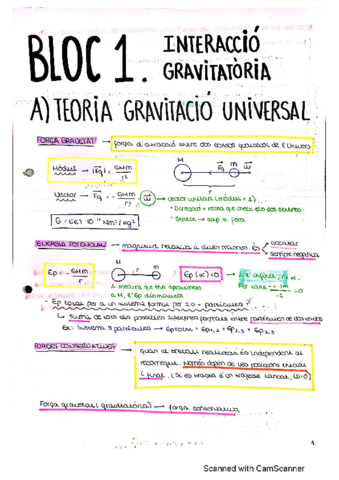 BLOC 1. INTERACCIÓ
GRAVITATÒRIA
A) TEORIA GRAVITACIÓ UNIVERSAL
FORÇA GRAVETAT → força d'atracció entre dos cossos qualsevol de l'Univers
Mòdul → |Fg| = GMm / r²
M Fg m
r
Vector → Fg = - GMm / r²
vector unitari (mòdul = 1)...
Direcció = recta que uneix els dos centres
Sentit → cap a fora
G = 6'67·10⁻¹¹ Nm²/kg²
ENERGIA POTENCIAL → magnitud relativa a dues masses. És escalar
sempre negativa
Ep = - GMm / r
M m
r
Ep (∞) = 0
A mesura que ens aproximem
a M, l'Ep disminueix
- Ep total per a un sistema format per 2 o + partícules?
Suma de tots els possibles sistemes formats entre partícules dos a dos
Ex: Sistema 3 partícules → Ep TOTAL = Ep1,2 + Ep1,3 + Ep2,3
FORCES CONSERVATIVES → quan el treball realitzat és independent al
recorregut. Només depèn de les posicions inicial
i final. (Si es tracta d'un trajecte tancat, W=0)
Força gravetat (gravitatòria) → força conservativa
1
Scanned with CamScanner